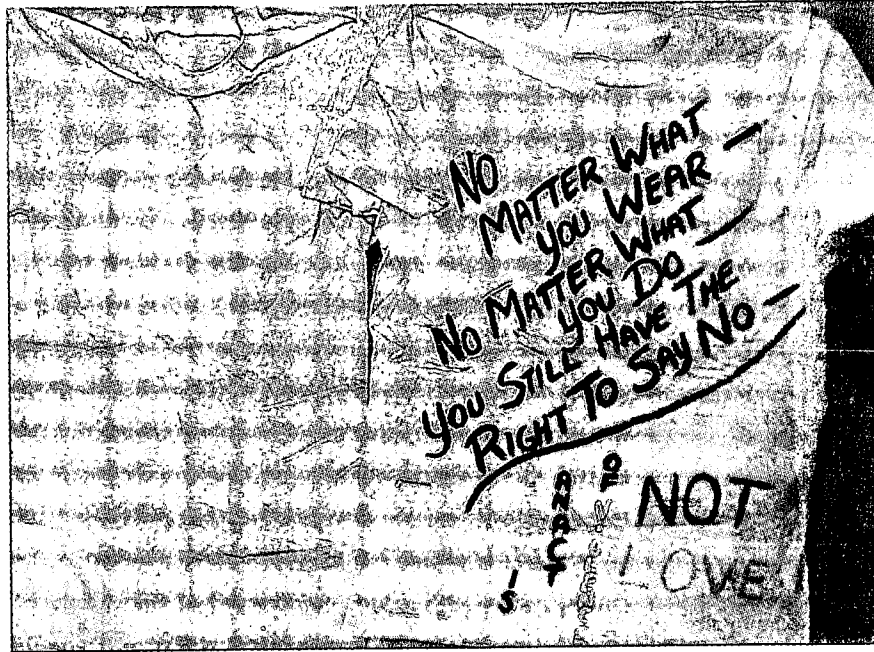 NO
MATTER WHAT
YOU WEAR —
NO MATTER WHAT
YOU DO —
YOU STILL HAVE THE
RIGHT TO SAY NO —
IS
AN ACT
OF
NOT
LOVE!